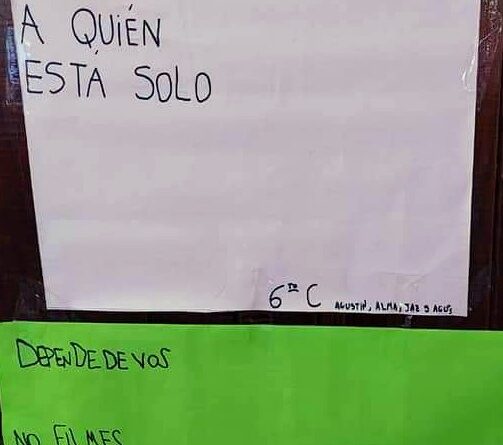 A QUIÉN
ESTÁ SOLO
6ᵗᵒ C AGUSTÍN, ALMA, JAZ Y AGUS
DEPENDE DE VOS
NO FILMES